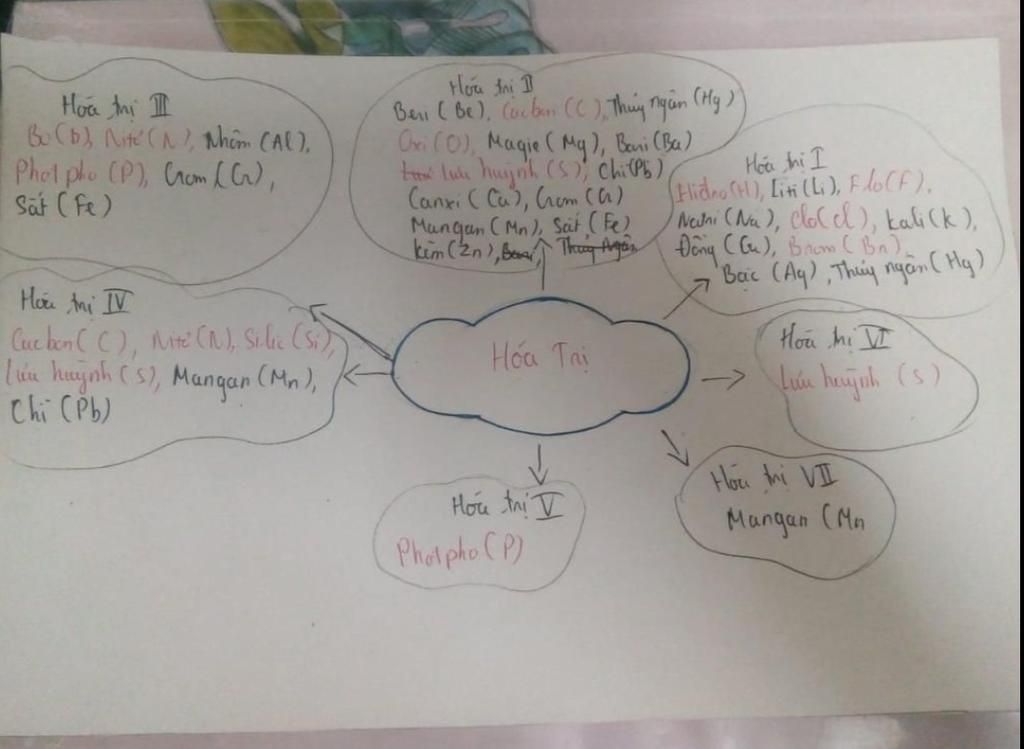 Hóa trị III
Bo(b), Nitơ(N), Nhôm(Al),
Photpho(P), Crom(Cr),
Sắt(Fe)
Hóa trị II
Beri(Be), Cacbon(C), Thủy ngân(Hg)
Oxi(O), Magie(Mg), Bari(Ba)
lưu huỳnh(S), Chì(Pb)
Canxi(Ca), Crom(Cr)
Mangan(Mn), Sắt(Fe)
kẽm(Zn), Thủy Ngân
Hóa trị I
Hiđro(H), Liti(Li), Flo(F),
Natri(Na), clo(cl), kali(k),
Đồng(Cu), Brom(Bn),
Bạc(Ag), Thủy ngân(Hg)
Hóa trị IV
Cacbon(C), Nitơ(N), Silic(Si),
Lưu huỳnh(S), Mangan(Mn),
Chì(Pb)
Hóa Trị
Hóa trị VI
Lưu huỳnh (S)
Hóa trị V
Photpho(P)
Hóa trị VII
Mangan(Mn